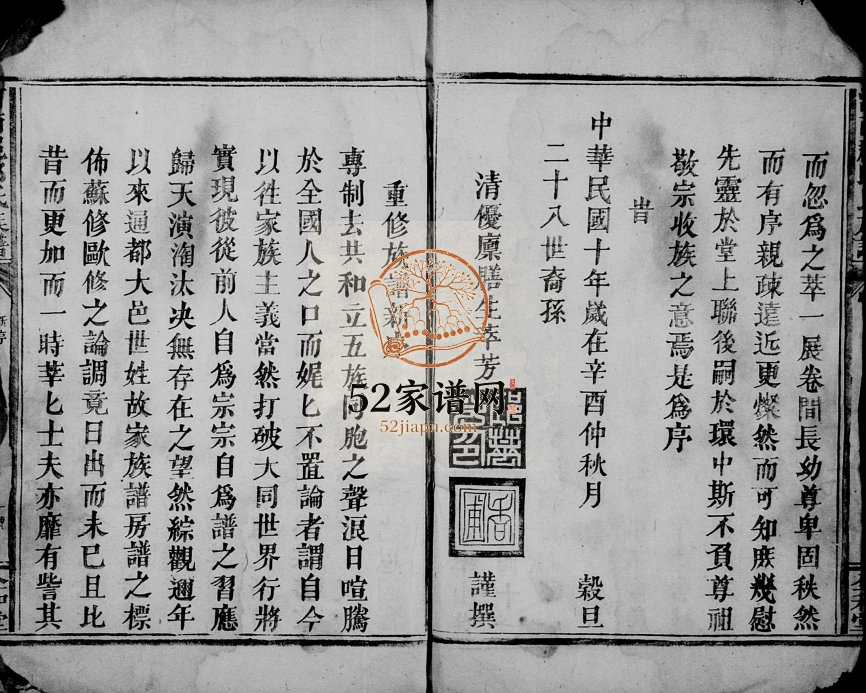 而忽爲之萃一展卷間長幼尊卑固秩然
而有序親疎遠近更燦然而可知庶幾慰
先靈於堂上聯後嗣於環中斯不負尊祖
敬宗收族之意焉是爲序
旹
中華民國十年歲在辛酉仲秋月 穀旦
二十八世裔孫
清優廩膳生萃芳 謹撰
重修族譜新序
專制去共和立五族同胞之聲浪日喧騰
於全國人之口而娓匕不置論者謂自今
以徃家族主義當然打破大同世界行將
實現彼從前人自爲宗宗自爲譜之習應
歸天演淘汰决無存在之望然綜觀邇年
以來通都大邑世姓故家族譜房譜之標
佈蘇修歐修之論調竟日出而未已且比
昔而更加而一時莘匕士夫亦靡有訾其
52家谱网
52jiapu.com